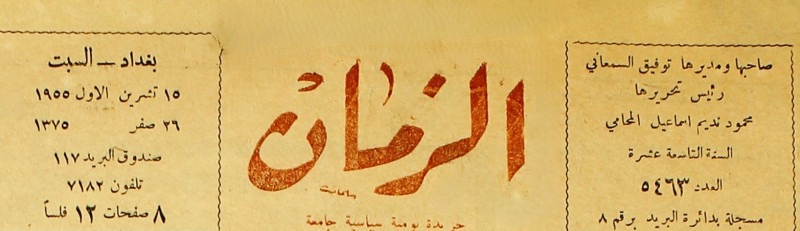 صاحبها ومديرها توفيق السمعاني
رئيس تحريرها
محمود نديم اسماعيل المحامي
السنة التاسعة عشرة
العدد ٥٤٦٣
مسجلة بدائرة البريد برقم ٨
الزمان
جريدة يومية سياسية جامعة
بغداد – السبت
١٥ تشرين الاول ١٩٥٥
٢٦ صفر ١٣٧٥
صندوق البريد ١١٧
تلفون ٧١٨٢
٨ صفحات ١٢ فلساً